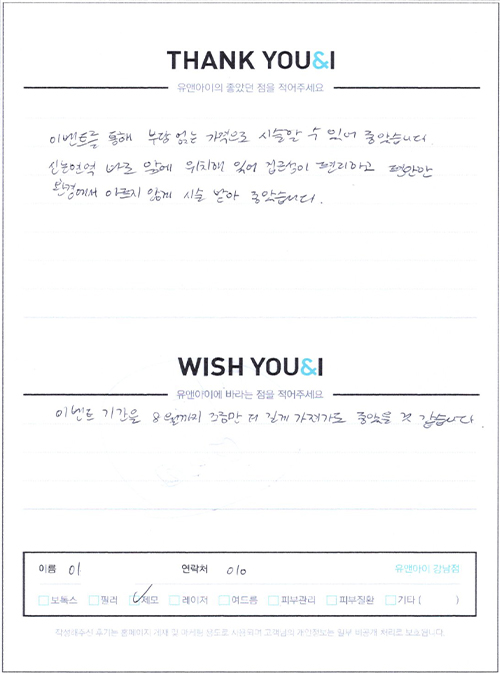 THANK YOU&I
유앤아이의 좋았던 점을 적어주세요
이벤트를 통해 부담 없는 가격으로 시술할 수 있어 좋았습니다.
신논현역 바로 앞에 위치해 있어 접근성이 편리하고 편안한
환경에서 아프지 않게 시술 받아 좋았습니다.
WISH YOU&I
유앤아이에 바라는 점을 적어주세요
이벤트 기간을 8월까지 조금만 더 길게 가져가도 좋았을 것 같습니다.
이름 이 연락처 010 유앤아이 강남점
보톡스 필러 제모 레이저 여드름 피부관리 피부질환 기타 ( )
작성해주신 후기는 홈페이지 게재 및 마케팅 용도로 사용되며 고객님의 개인정보는 일부 비공개 처리로 보호됩니다.